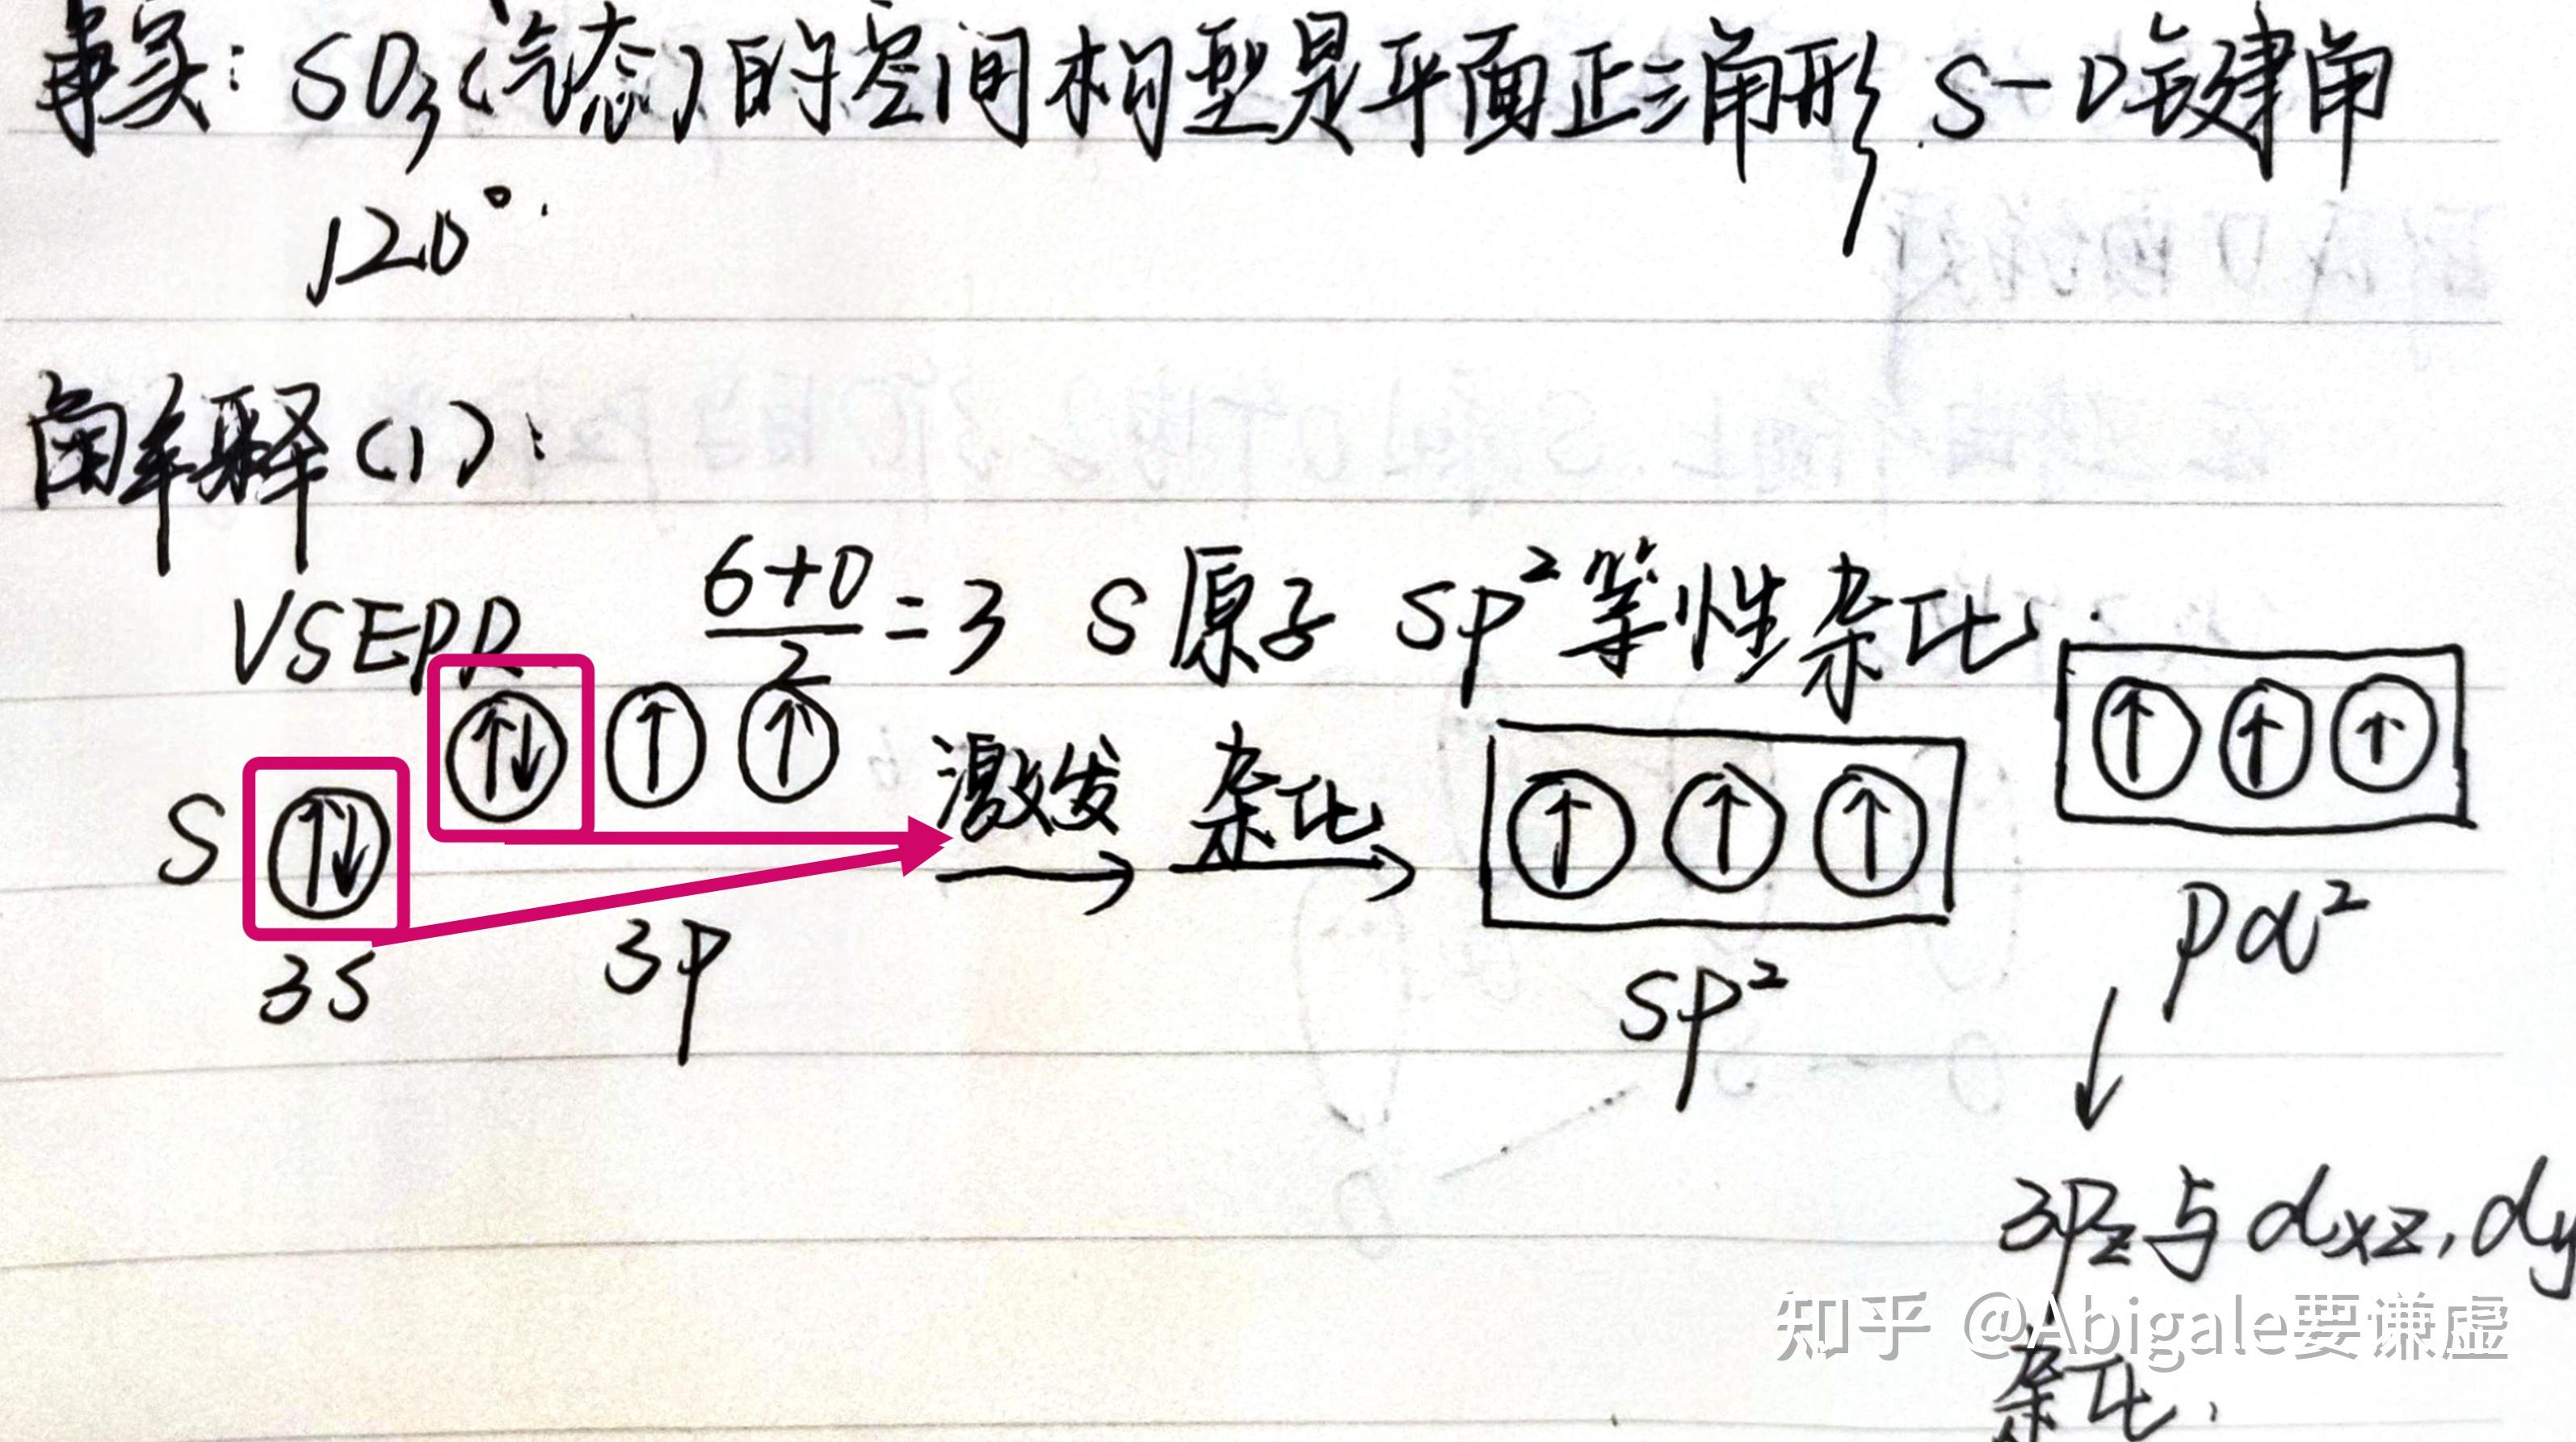 事实：SO₃(气态)的空间构型是平面正三角形.S-O键键角
120°.
解释(1)：
VSEPR (6+0)/2=3 S原子 sp²等性杂化.
S ↑↓ ↑↓ ↑ ↑ 激发 杂化 ↑ ↑ ↑ ↑ ↑ ↑
3s 3p sp² pd²
↓
3Pz与dxz,dy
杂化.
知乎 @Abigale要谦虚